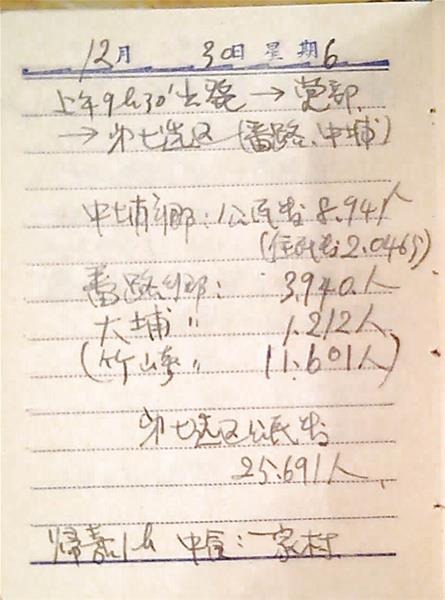 12月 30日 星期6
上午9h30'出発 → 党部、
→ 第七选区 (番路、中埔)
中埔鄉:公民数 8.941人
(住民数2.046分)
番路鄉: 3.940.人
大埔 〃 1.212人
(竹崎 〃 11.601人)
第七选区公民数
25.691人、
帰嘉1h 中食:一家村